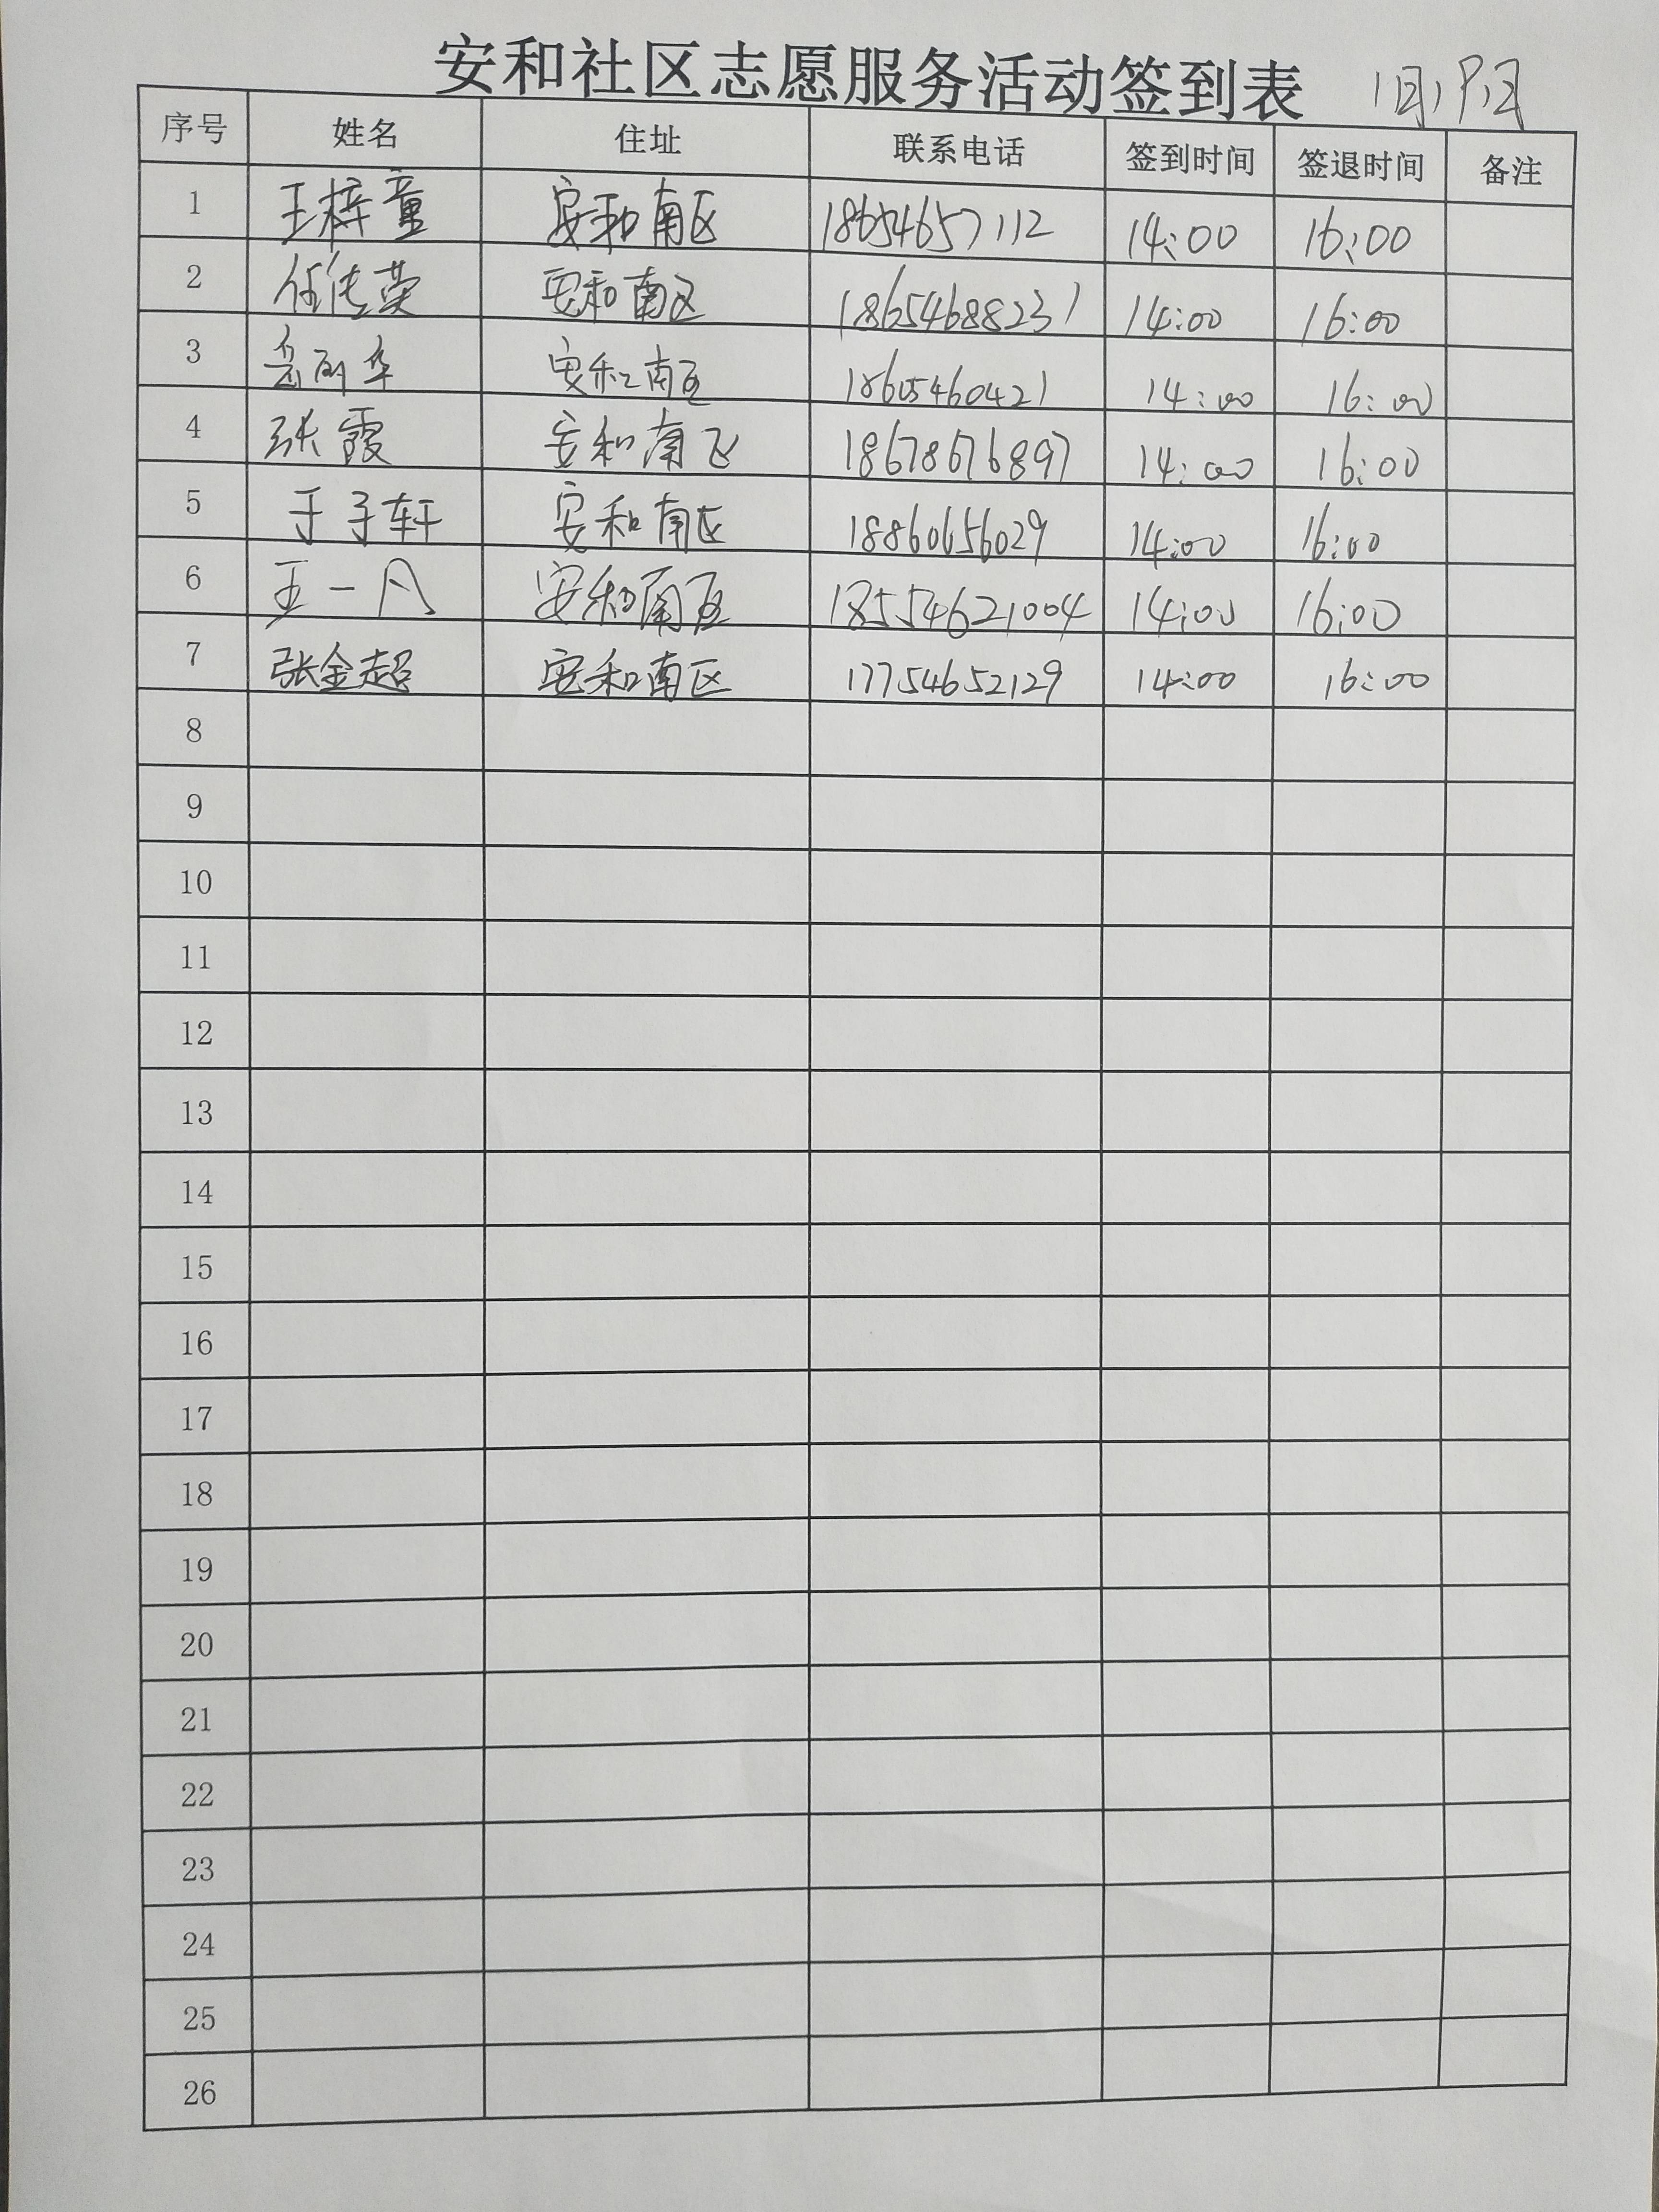 安和社区志愿服务活动签到表 1月19日
序号 姓名 住址 联系电话 签到时间 签退时间 备注
1 王梓童 安和南区 18654657112 14:00 16:00
2 任传荣 安和南区 18654688231 14:00 16:00
3 安和南区 18605460421 14:00 16:00
4 张霞 安和南区 18678676897 14:00 16:00
5 于子轩 安和南区 18860656029 14:00 16:00
6 王一凡 安和南区 18554621004 14:00 16:00
7 张金超 安和南区 17754652129 14:00 16:00
8
9
10
11
12
13
14
15
16
17
18
19
20
21
22
23
24
25
26